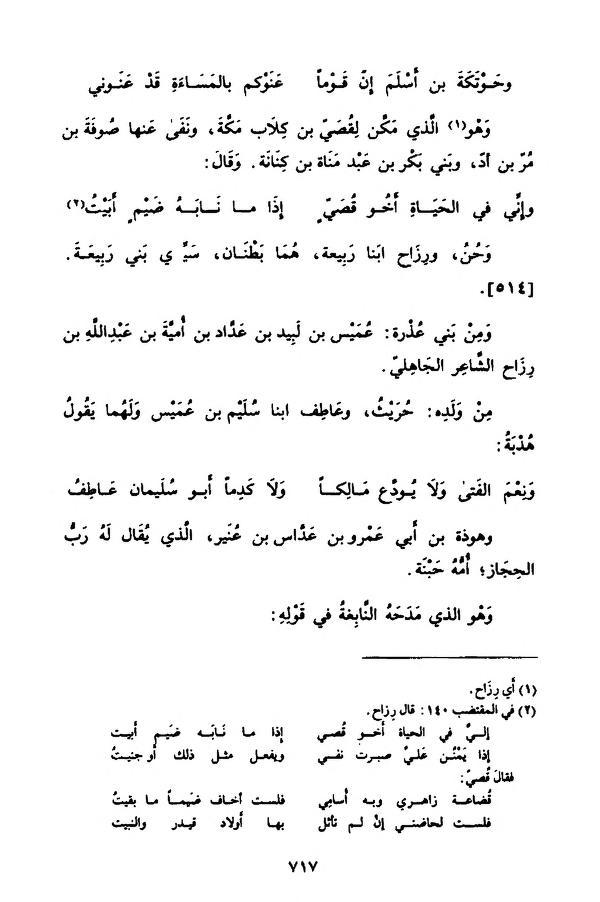 وحَوْتَكَةَ بن أَسْلَمَ إِنَّ قَوْماً عَنَوْكم بالمَسَاءَةِ قَدْ عَنَوني
وَهُو(١) الَّذي مَكَّن لِقُصَيّ بن كِلَاب مَكَّةَ، ونَفَىٰ عَنها صُوفَةَ بن
مُرّ بن أُدّ، وبَني بَكْر بن عَبْد مَنَاة بن كِنَانَة. وَقَالَ:
وإِنِّي في الحَيَاةِ أَخُو قُصَيٍّ إِذَا ما نَابَهُ ضَيْمٍ أَبَيْتُ(٢)
وَحُنُّ، ورِزَاح ابنَا رَبِيعة، هُمَا بَطْنَان، سَيِّدَي بَني رَبِيعَةَ.
[٥١٤].
وَمِنْ بَني عُذْرة: عُمَيْس بن لَبِيد بن عَدَّاد بن أُميَّة بن عَبْدِاللَّهِ بن
رِزَاح الشَّاعِر الجَاهِليّ.
مِنْ وَلَدِه: حُرَيْثُ، وعَاطِف ابنا سُلَيْم بن عُمَيْس وَلَهُما يَقُولُ
هُدْبَةُ:
وَنِعْمَ الفَتىٰ وَلَا يُودِّع مَالِكاً وَلَا كَدِماً أبو سُلَيمان عَاطِفُ
وهوذة بن أَبي عَمْرو بن عَدَّاس بن عُنَير، الَّذي يُقَال لَهُ رَبُّ
الحِجَاز؛ أُمُّهُ حَبْنَة.
وَهُو الذي مَدَحَهُ النَّابِغةُ في قَوْلِهِ:
(١) أي رِزَاح.
(٢) في المقتضب ١٤٠: قال رِزاح.
إليَّ في الحياة أخو قُصي إذا ما نَابَه ضَيَم أبيت
إذا يَمْنُن عَليَّ صبرت نفسي ويفعل مثل ذلك أو جنيتُ
فقال قُصيّ:
قُضاعة زاهري وبه أُسامِي فلست أخاف ضَيْماً ما بقيتُ
فلست لحاضني إنْ لم تأثّل بها أولاد قيدر والنبيت
٧١٧